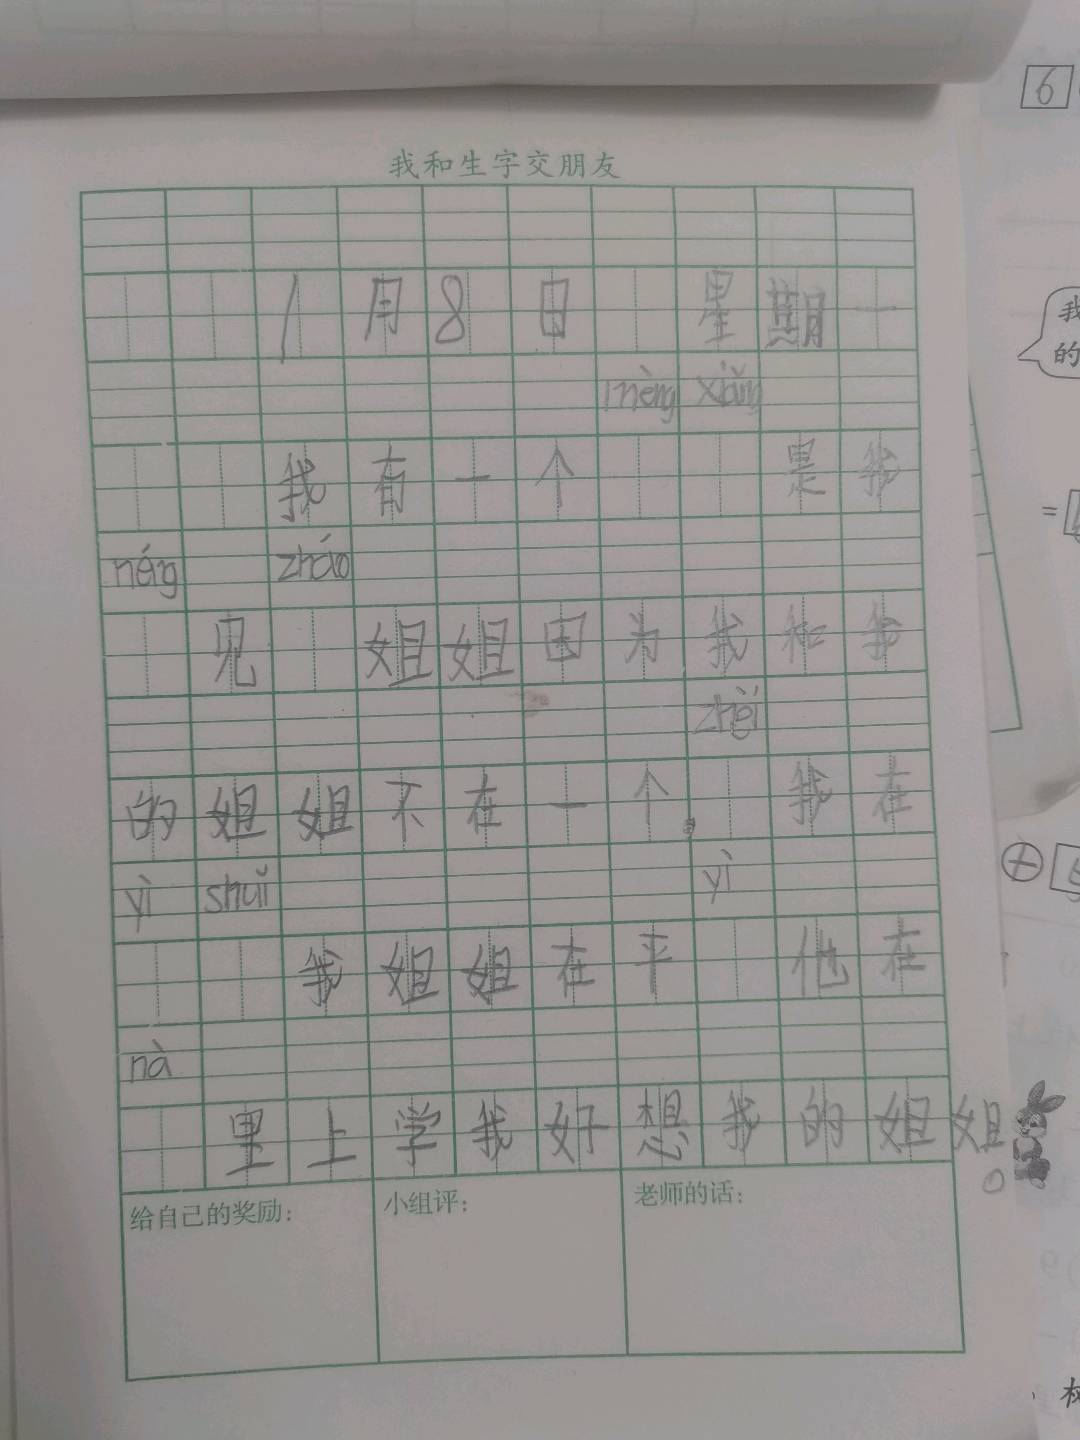 我和生字交朋友
1月8日 星期一
mèng xiǎng
我有一个 是我
néng zháo
见 姐姐因为我和我
zhěi
的姐姐不在一个 我在
yì shuǐ yì
我姐姐在平 他在
nà
里上学我好想我的姐姐。
给自己的奖励：
小组评：
老师的话：
6
我
的
=